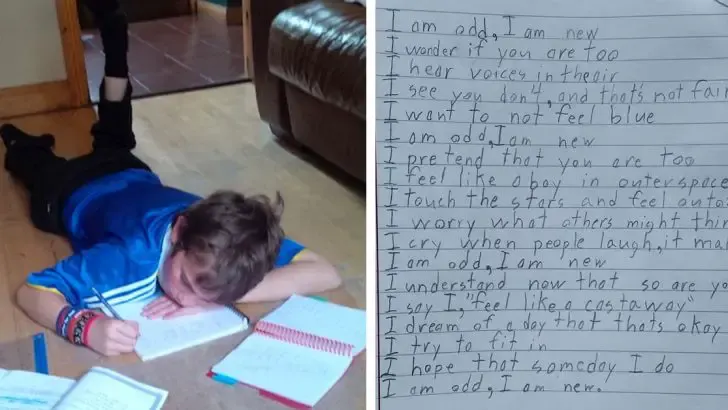 I am odd, I am new
I wonder if you are too
I hear voices in theair
I see you don't, and that's not fair
I want to not feel blue
I am odd, I am new
I pretend that you are too
I feel like a boy in outerspace
I touch the stars and feel
I worry what others might
I cry when people laugh, it
I am odd, I am new
I understand now that so are
I say I, "feel like a castaway"
I dream of a day that thats okay
I try to fit in
I hope that someday I do
I am odd, I am new.